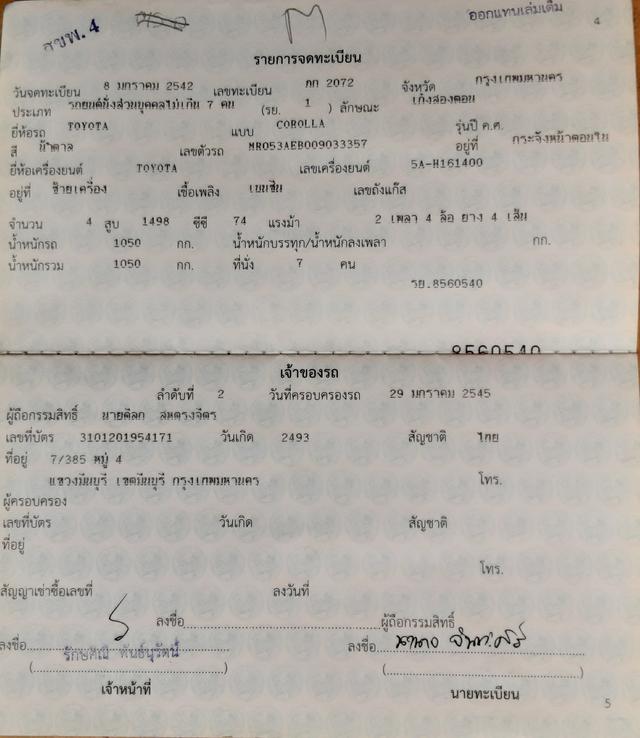 สขพ. 4
ออกแทนเล่มเดิม
4
รายการจดทะเบียน
วันจดทะเบียน 8 มกราคม 2542 เลขทะเบียน ภก 2072 จังหวัด กรุงเทพมหานคร
ประเภท รถยนต์นั่งส่วนบุคคลไม่เกิน 7 คน (รย. 1 ) ลักษณะ เก๋งสองตอน
ยี่ห้อรถ TOYOTA แบบ COROLLA รุ่นปี ค.ศ.
สี น้ำตาล เลขตัวรถ MR053AEB009033357 อยู่ที่ กระจังหน้าตอนใน
ยี่ห้อเครื่องยนต์ TOYOTA เลขเครื่องยนต์ 5A-H161400
อยู่ที่ ซ้ายเครื่อง เชื้อเพลิง เบนซิน เลขถังแก๊ส
จำนวน 4 สูบ 1498 ซีซี 74 แรงม้า 2 เพลา 4 ล้อ ยาง 4 เส้น
น้ำหนักรถ 1050 กก. น้ำหนักบรรทุก/น้ำหนักลงเพลา กก.
น้ำหนักรวม 1050 กก. ที่นั่ง 7 คน
รย.8560540
8560540
เจ้าของรถ
ลำดับที่ 2 วันที่ครอบครองรถ 29 มกราคม 2545
ผู้ถือกรรมสิทธิ์ นายดิลก สมตรงจิตร
เลขที่บัตร 3101201954171 วันเกิด 2493 สัญชาติ ไทย
ที่อยู่ 7/385 หมู่ 4
แขวงมีนบุรี เขตมีนบุรี กรุงเทพมหานคร โทร.
ผู้ครอบครอง
เลขที่บัตร วันเกิด สัญชาติ
ที่อยู่
โทร.
สัญญาเช่าซื้อเลขที่ ลงวันที่
ลงชื่อ ผู้ถือกรรมสิทธิ์
ลงชื่อ รักษ์คณิ พันธ์นุรัตน์ ลงชื่อ
( ) ( )
เจ้าหน้าที่ นายทะเบียน
5